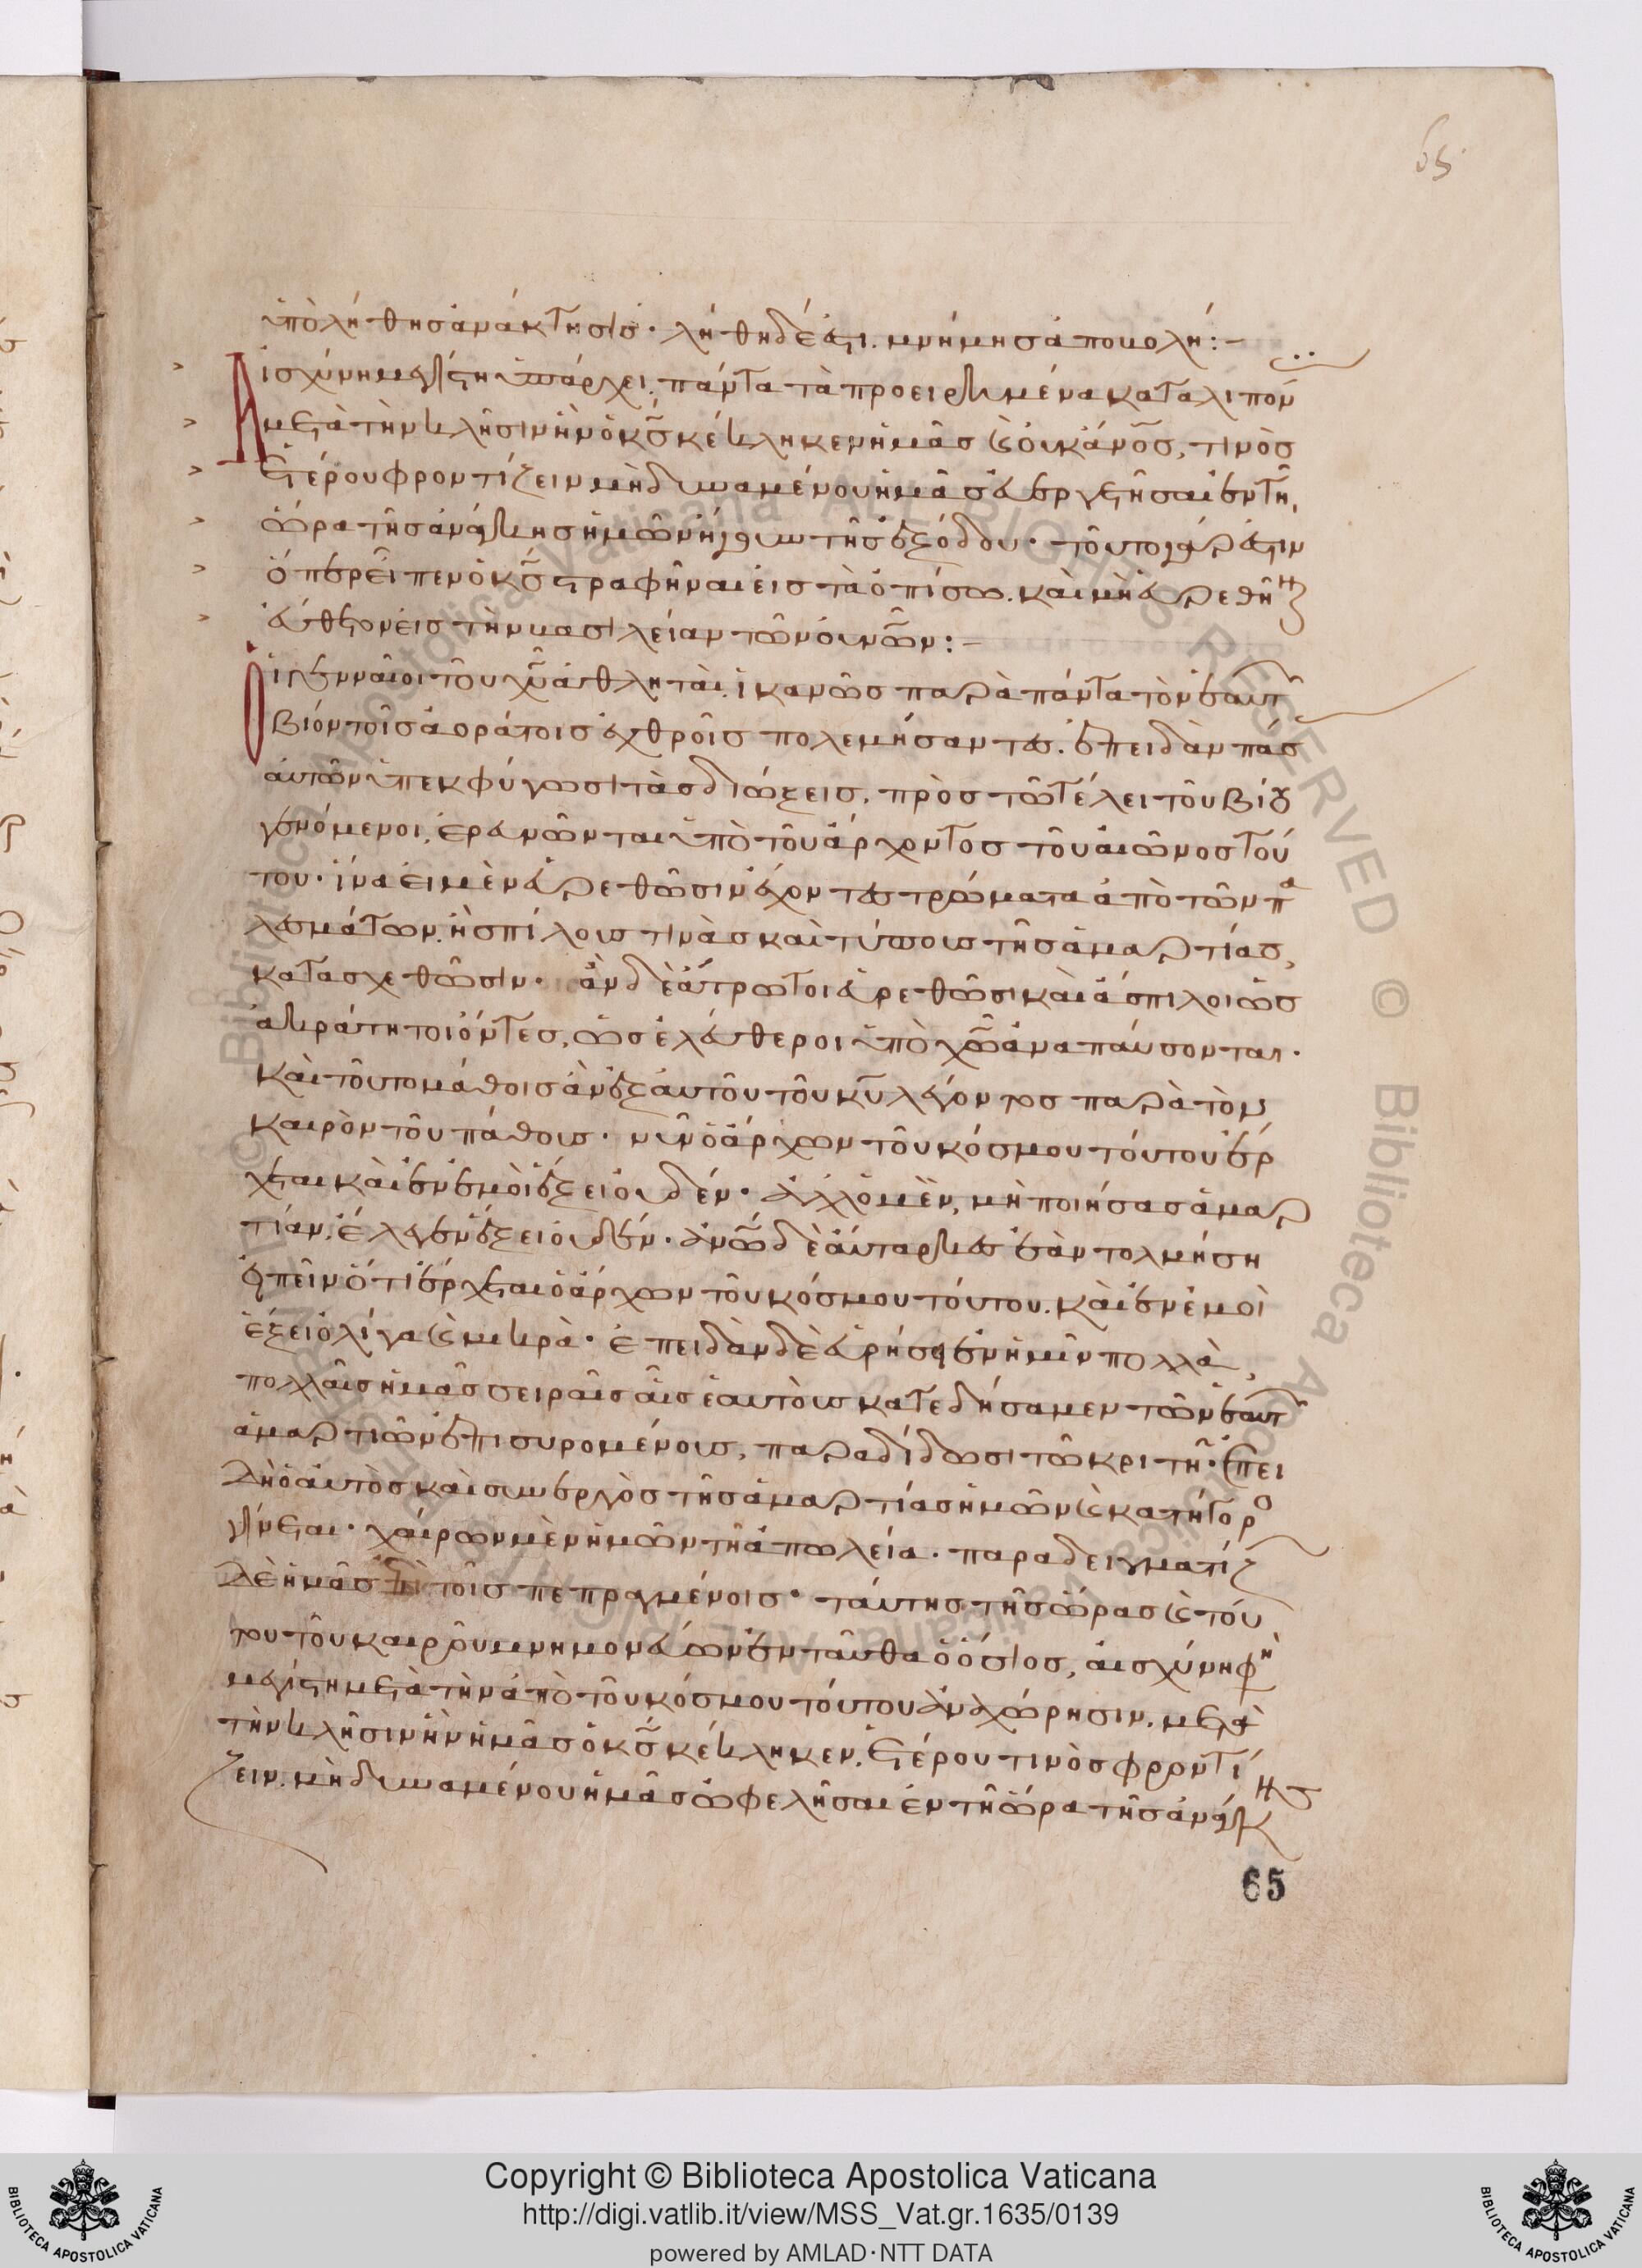 65.
ὑπὸ λήθης ἀνάκτησις· λήθη δέ ἐστι. μνήμης ἀποβολή:-
Αἰσχύνη μεγίστη ὑπάρχει, πάντα τὰ προειρημένα καταλιπόν
μετὰ τὴν κλῆσιν ἣν ὁ κς κέκληκεν ἡμᾶς καὶ ὁ οὐκάνος, τινὸς
ἑτέρου φροντίζειν μὴ δυναμένου ἡμᾶς εὐεργετῆσαι ἐν τῆ
ὥρα τῆς ἀνάγκης ἡμῶν ἤγουν τῆς ἐξόδου· τοῦτο γάρ ἐστιν
ὅπερ εἶπεν ὁ κς στραφῆναι εἰς τὰ ὀπίσω. καὶ μὴ εὑρεθῆναι
εὔθετον εἰς τὴν βασιλείαν τῶν οὐνῶν:-
Οἱ γενναῖοι τοῦ χυ ἀθληταὶ. ἱκανῶς παρὰ πάντα τὸν ἑαυτ
βίον τοῖς ἀοράτοις ἐχθροῖς πολεμήσαντες. ἐπειδὰν πάσ
αὐτῶν ὑπεκφύγωσι τὰς διώξεις, πρὸς τῶ τέλει τοῦ βίου
γενόμενοι, ἐρευνῶνται ὑπὸ τοῦ ἄρχοντος τοῦ αἰῶνος τού
του· ἵνα εἰ μὲν εὑρεθῶσιν ἔχοντες τρώματα ἀπὸ τῶν πα
λεσμάτων. ἢ σπίλους τινὰς καὶ τύπους τῆς ἁμαρτίας,
κατασχεθῶσιν· ἂν δὲ ἄτρωτοι εὑρεθῶσι καὶ ἄσπιλοι ὡς
ἀκράτητοι ὄντες, ὡς ἐλεύθεροι ὑπὸ χω ἀναπαύσονται·
καὶ τοῦτο μάθοις ἂν ἐξ αὐτοῦ τοῦ κυ λέγοντος παρὰ τὸν
καιρὸν τοῦ πάθους· νῦν ὁ ἄρχων τοῦ κόσμου τούτου ἔρ
χεται καὶ ἐν ἐμοὶ ἕξει οὐδέν· ἀλλ' ὁ μὲν, μὴ ποιήσας ἁμαρ
τίαν, ἔλεγεν ἕξει οὐδέν· ἀνω δὲ αὔταρκες ἐὰν τολμήση
εἰπεῖν ὅτι ἔρχεται ὁ ἄρχων τοῦ κόσμου τούτου. καὶ ἐν ἐμοὶ
ἕξει ὀλίγα καὶ μικρὰ· ἐπειδὰν δὲ εὑρήσει ἐν ἡμῖν πολλὰ,
πολλαῖς ἡμᾶς σειραῖς αἷς ἑαυτοὺς κατεδήσαμεν τῶν ἑαυτ
ἁμαρτιῶν ἐπισυρομένους, παραδίδωσι τῶ κριτῆ· ἐπει
δὴ ὁ αὐτὸς καὶ συνεργὸς τῆς ἁμαρτίας ἡμῶν καὶ κατήγορο
γίνεται· χαίρων μὲν ἡμῶν τῆ ἀπωλεία· παραδειγματίζ
δὲ ἡμᾶς ἐπὶ τοῖς πεπραγμένοις· ταύτης τῆς ὥρας καὶ τού
του τοῦ καιροῦ μνημονεύων ἐνταῦθα ὁ ὅσιος, αἰσχύνη φη
μεγίστη μετὰ τὴν ἀπὸ τοῦ κόσμου τούτου ἀναχώρησιν, μετὰ
τὴν κλῆσιν ἣν ἡμᾶς ὁ κς κέκληκεν. ἑτέρου τινὸς φροντί
ζειν. μὴ δυναμένου ἡμᾶς ὠφελῆσαι ἐν τῆ ὥρα τῆς ἀνάγκης
65
Copyright © Biblioteca Apostolica Vaticana
http://digi.vatlib.it/view/MSS_Vat.gr.1635/0139
powered by AMLAD·NTT DATA
BIBLIOTECA APOSTOLICA VATICANA
BIBLIOTECA APOSTOLICA VATICANA